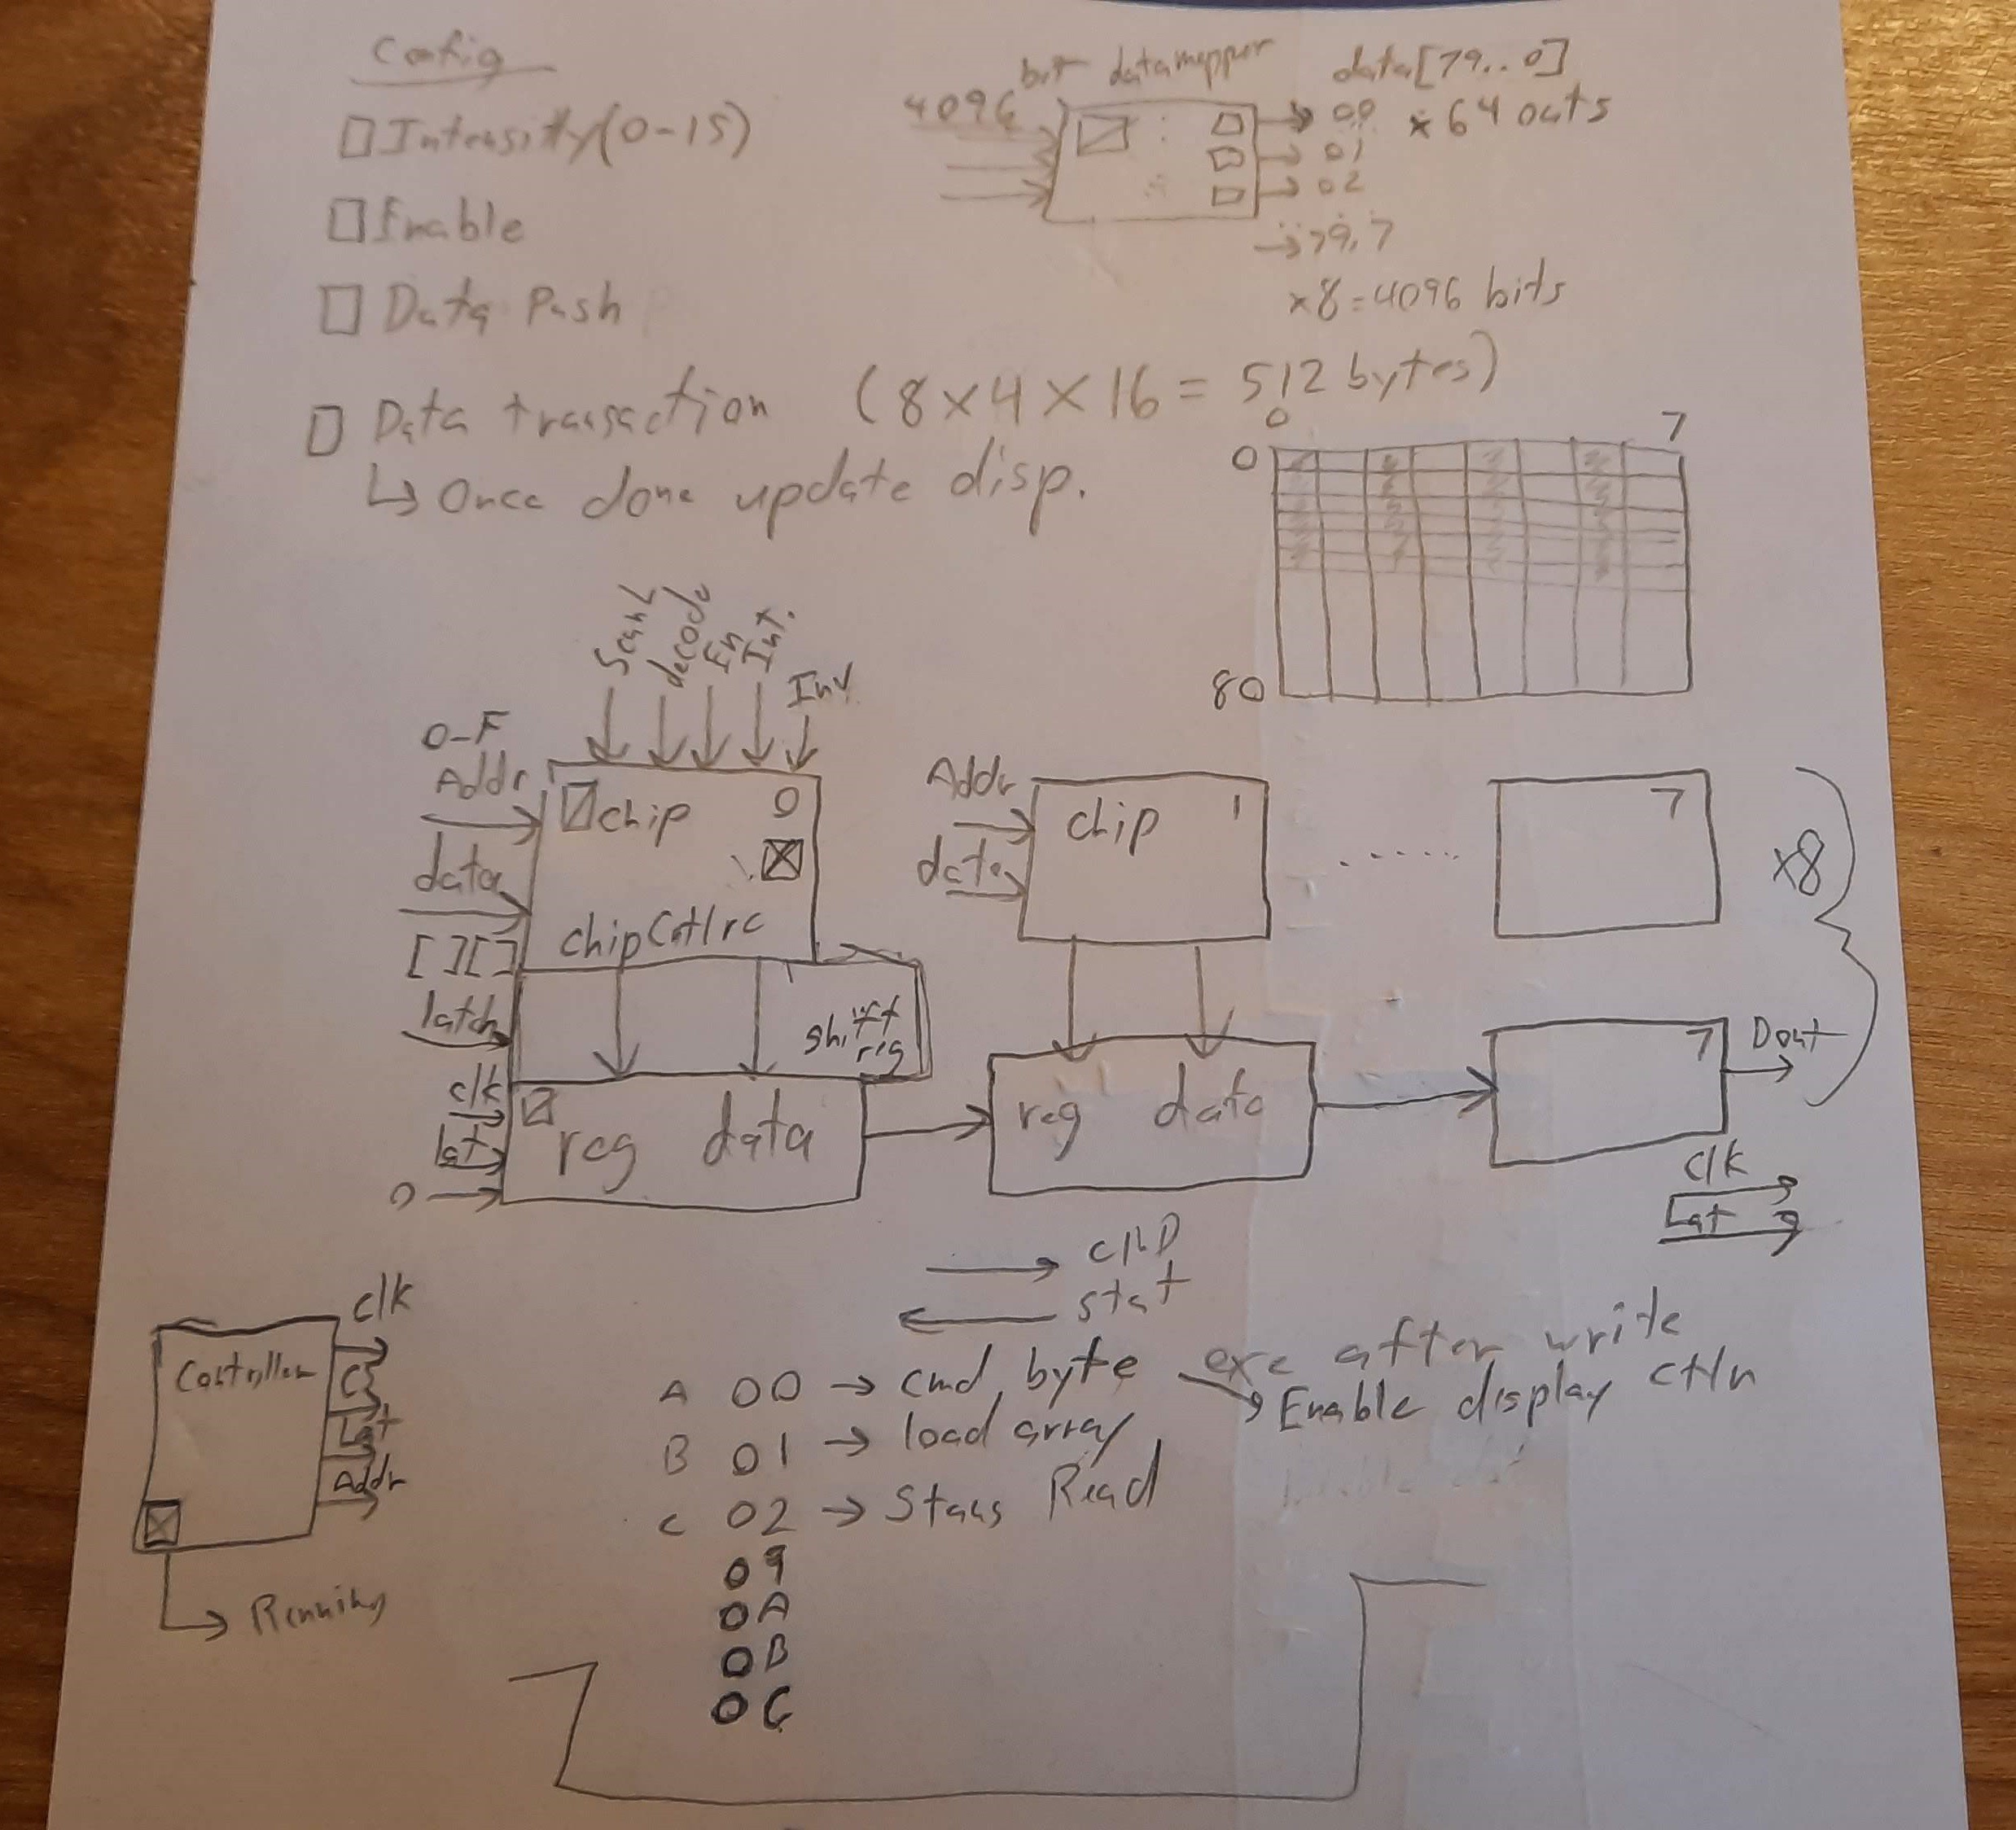 Config
Intensity(0-15)
Enable
Data Push
Data transaction (8x4x16 = 512 bytes)
↳ Once done update disp.
bit datamapper
4096
data[79..0]
00 x 64 outs
01
02
→79,7
x8=4096 bits
0 7
0
80
ScanL
decode
En
Int.
Inv
0-F
Addr
data
[][]
latch
chip 0
chipCntlrc
shift
reg
clk
lat
0
reg data
Addr
data
chip 1
reg data
7
x8
7
Dout
clk
Lat
CMD
stat
Controller
clk
Lat
Addr
Running
A 00 → cmd byte exe after write
Enable display ctln
B 01 → load array
C 02 → Staus Read
09
0A
0B
0C